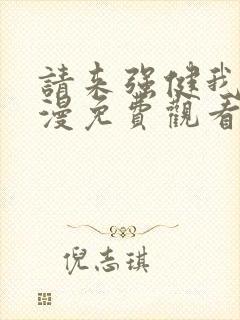 請来强健我
漫免費觀看
倪志琪